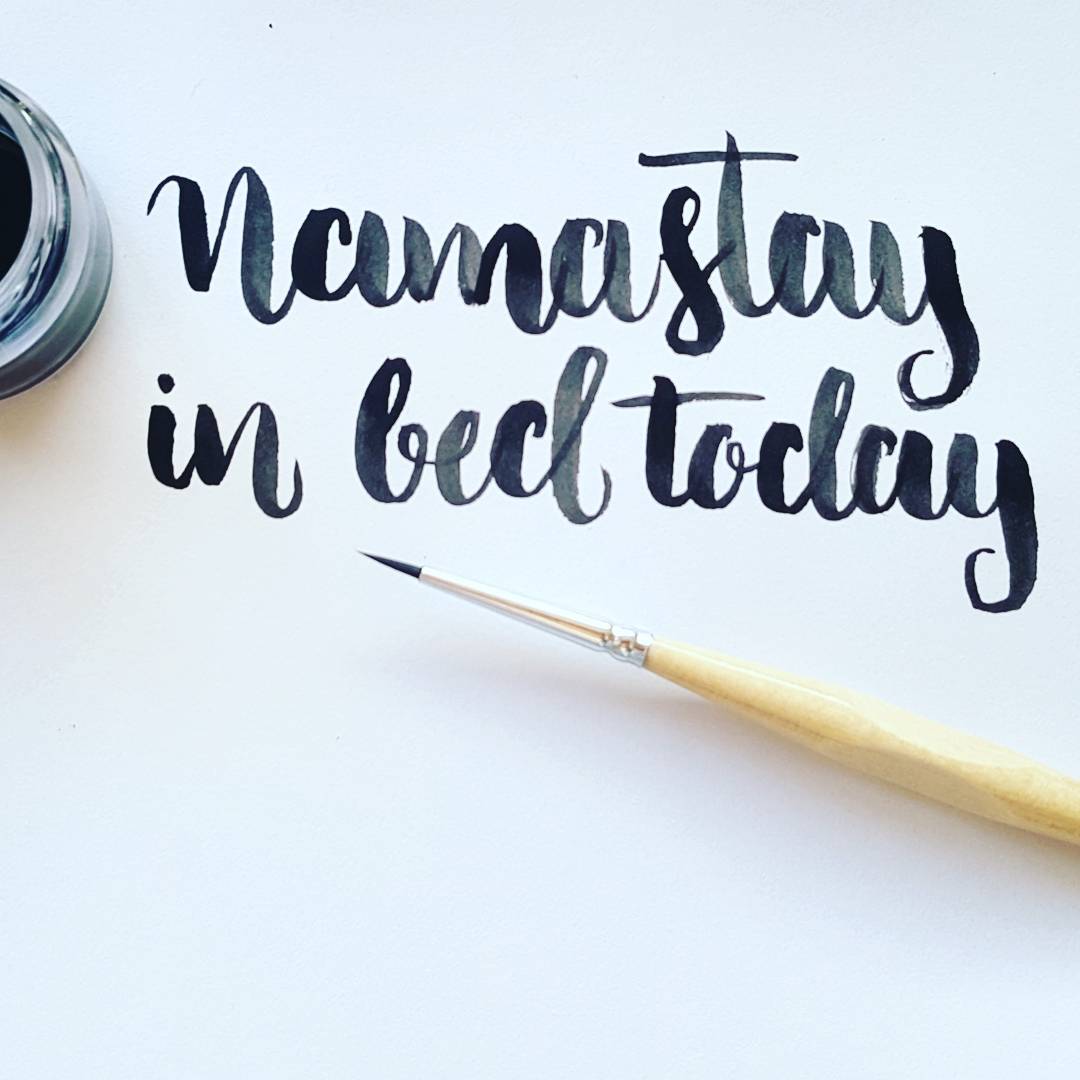 Namastay
in bed today